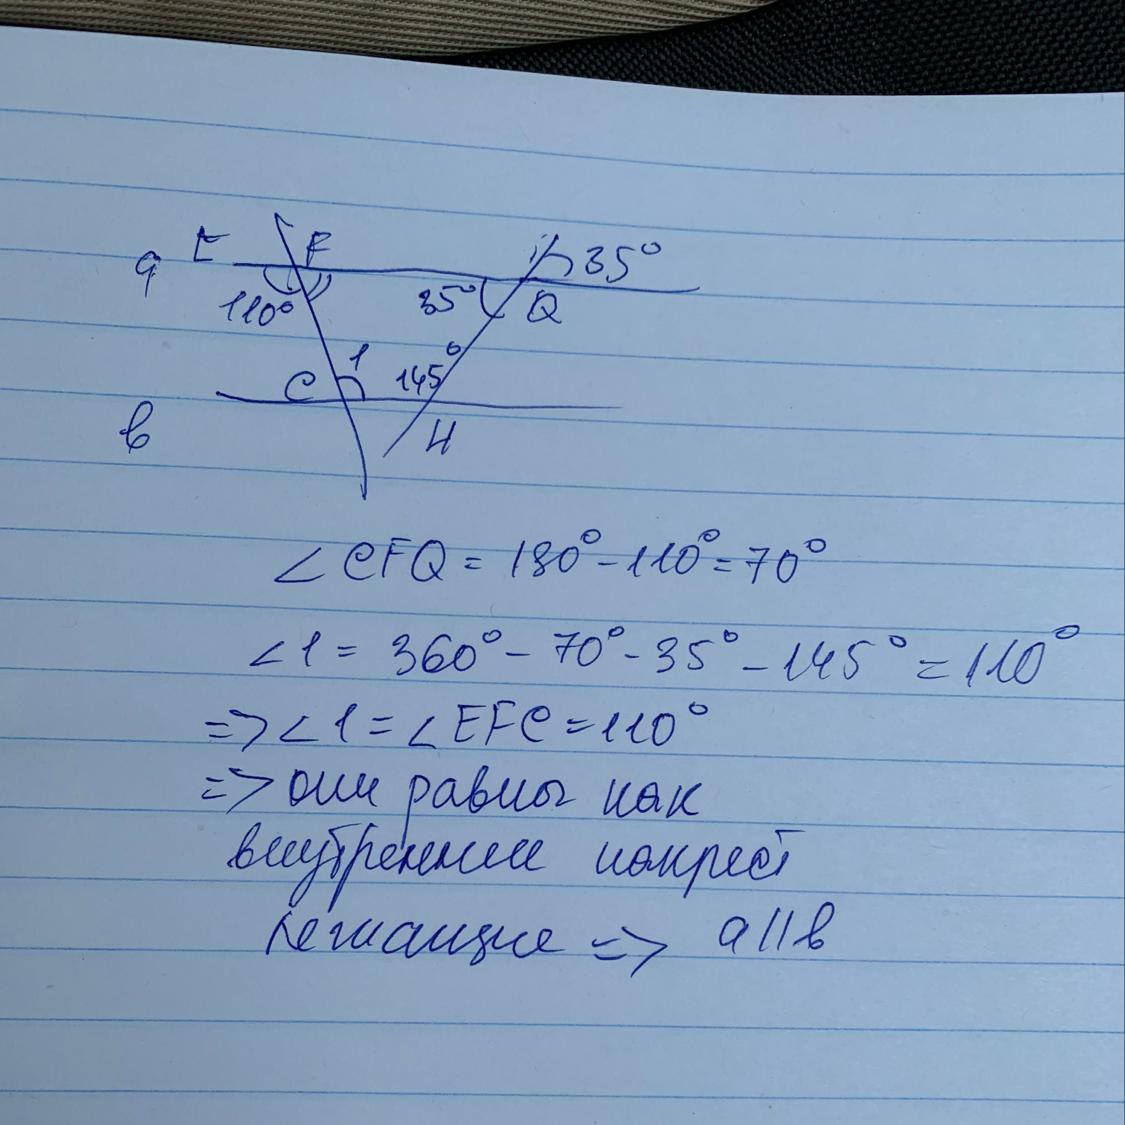 E F 35°
a
110° 35° Q
C 1 145°
b H
∠CFQ = 180° - 110° = 70°
∠1 = 360° - 70° - 35° - 145° = 110°
=> ∠1 = ∠EFC = 110°
=> они равны как
внутренние накрест
лежащие => a || b